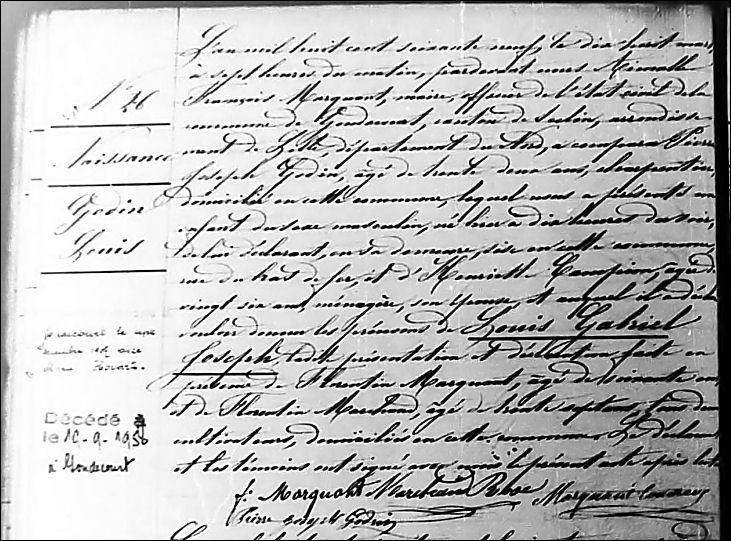 N° 26
Naissance
Godin
Louis
L'an mil huit cent soixante neuf, le dix huit mars,
à sept heures du matin, pardevant nous
François Marquant, maire, officier de l'état civil de la
commune de Gondecourt, canton de Seclin, arrondisse
ment de Lille, département du Nord, a comparu Pierre
Joseph Godin, agé de trente deux ans, charpentier,
domicilié en cette commune, lequel nous a présenté un
enfant du sexe masculin, né hier à dix heures du soir,
de lui déclarant, en sa demeure, sise en cette commune,
rue du bas de fer, et d'Henriette Campion, agée de
vingt six ans, ménagère, son épouse, et auquel il a déclaré
vouloir donner les prénoms de Louis Gabriel
Joseph. Les dites présentation et déclaration faites en
présence de Florentin Marquant, agé de soixante ans
et de Florentin Marchand, agé de trente sept ans, tous deux
cultivateurs, domiciliés en cette commune. Le déclarant
et les témoins ont signé avec nous le présent acte après lecture
f: Marquant Marchand Marquant
Pierre Joseph Godin
Décédé à
le 19-9-1956
à Gondecourt